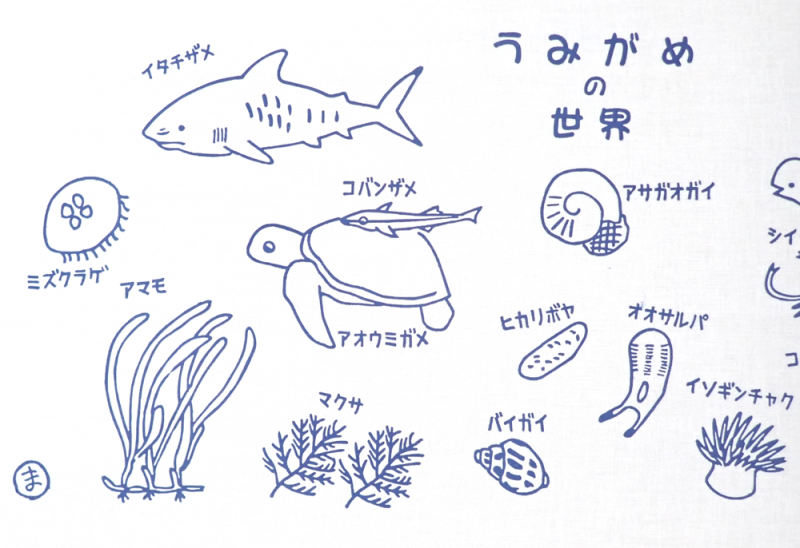 うみがめ
の
世界
イタチザメ
コバンザメ
アサガオガイ
ミズクラゲ
アマモ
アオウミガメ
ヒカリボヤ
オオサルパ
シイ
コ
イソギンチャク
マクサ
バイガイ
ま